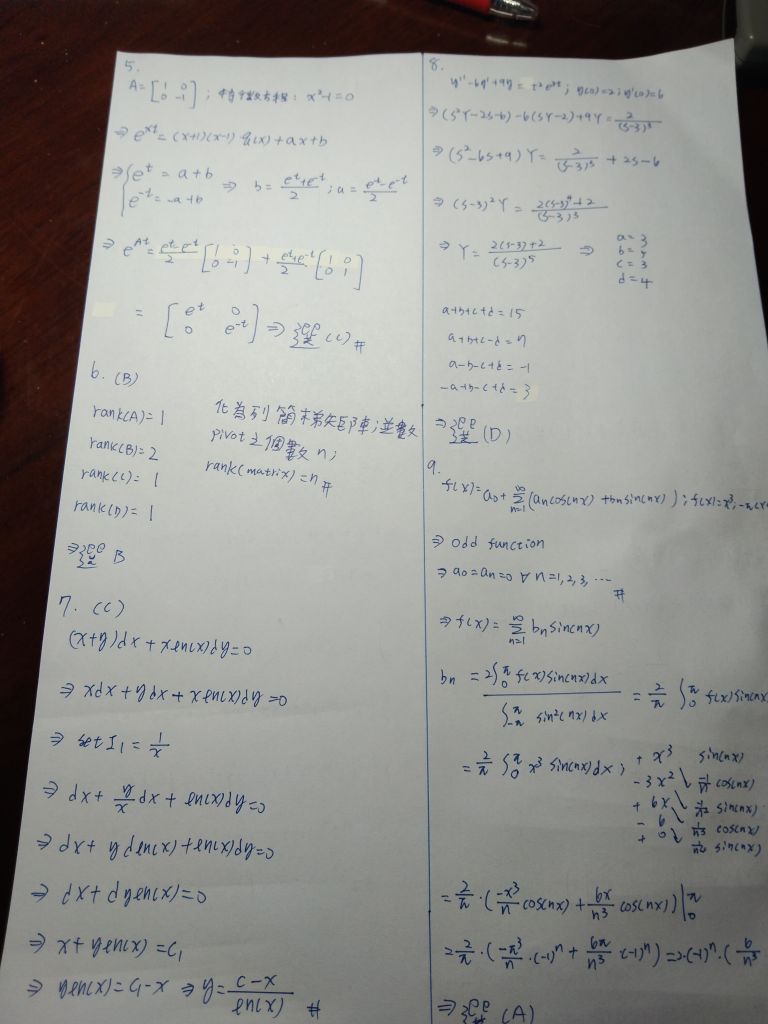 5.
A = [1 0; 0 -1] ; 特徵方程: x²-1=0
⇒ e^{xt} = (x+1)(x-1) q(x) + ax+b
⇒ { e^t = a+b
e^{-t} = -a+b ⇒ b = (e^t+e^{-t})/2 ; a = (e^t-e^{-t})/2
⇒ e^{At} = (e^t-e^{-t})/2 [1 0; 0 -1] + (e^t+e^{-t})/2 [1 0; 0 1]
= [e^t 0; 0 e^{-t}] ⇒ 選 (C) #
6. (B)
rank(A) = 1
rank(B) = 2
rank(C) = 1
rank(D) = 1
化為列簡梯矩陣;並數
pivot之個數n;
rank(matrix) = n #
⇒ 選 B
7. (C)
(x+y)dx + xln(x)dy=0
⇒ xdx + ydx + xln(x)dy=0
⇒ set I₁ = 1/x
⇒ dx + y/x dx + ln(x)dy=0
⇒ dx + y dln(x) + ln(x)dy=0
⇒ dx + dyln(x) = 0
⇒ x + yln(x) = C₁
⇒ yln(x) = C₁-x ⇒ y = (c-x)/ln(x) #
8.
y''-6y'+9y = t²e^{3t} ; y(0)=2 ; y'(0)=6
⇒ (s²Y-2s-6) - 6(sY-2) + 9Y = 2/(s-3)³
⇒ (s²-6s+9) Y = 2/(s-3)³ + 2s-6
⇒ (s-3)² Y = (2(s-3)⁴+2)/(s-3)³
⇒ Y = (2(s-3)+2)/(s-3)⁵ ⇒ a=3
b=5
c=3
d=4
a+b+c+d = 15
a+b+c-d = 7
a-b-c+d = -1
-a+b-c+d = 3
⇒ 選 (D)
9.
f(x) = a₀ + Σ_{n=1}^{∞} (aₙcos(nx) + bₙsin(nx)) ; f(x)=x³ ; -π<x<
⇒ odd function
⇒ a₀=aₙ=0 ∀ n=1,2,3,⋯ #
⇒ f(x) = Σ_{n=1}^{∞} bₙsin(nx)
bₙ = 2∫₀^π f(x)sin(nx)dx / ∫_{-π}^{π} sin²(nx)dx = 2/π ∫₀^π f(x)sin(nx)
= 2/π ∫₀^π x³ sin(nx)dx ; + x³ sin(nx)
- 3x² -1/n cos(nx)
+ 6x -1/n² sin(nx)
- 6 1/n³ cos(nx)
+ 0 1/n⁴ sin(nx)
= 2/π · (-x³/n cos(nx) + 6x/n³ cos(nx)) |₀^π
= 2/π · (-π³/n · (-1)ⁿ + 6π/n³ (-1)ⁿ) = 2·(-1)ⁿ · (6/n³
⇒ 選 (A)